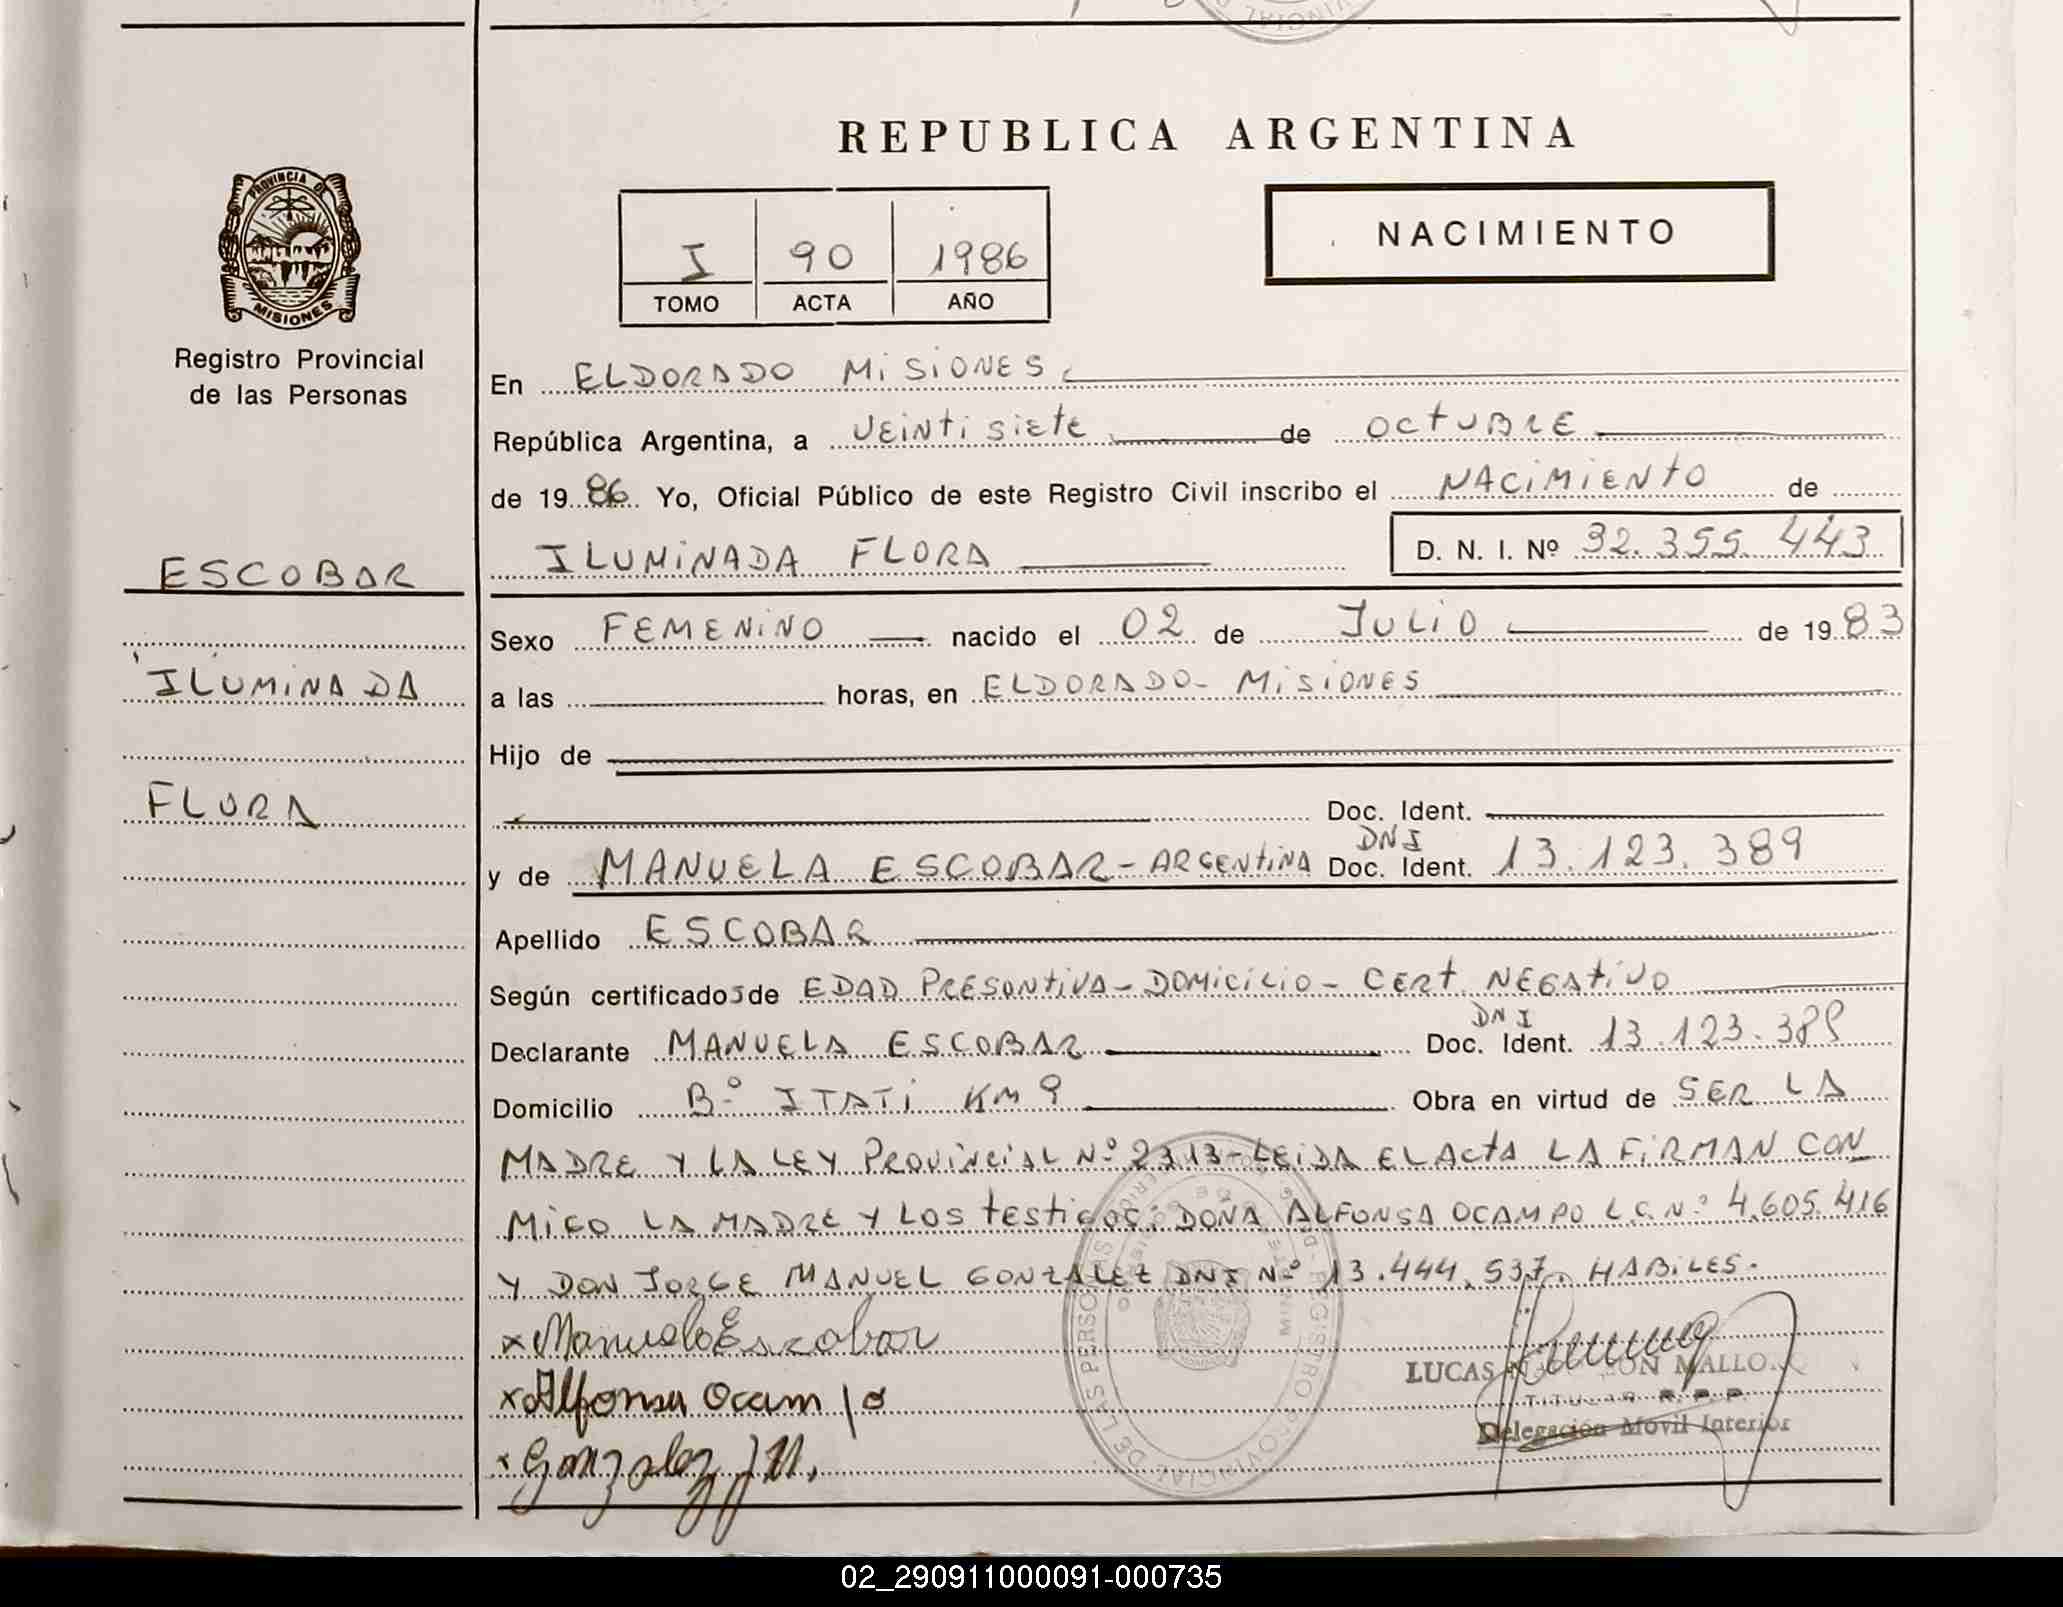 REPUBLICA ARGENTINA
PROVINCIA DE
MISIONES
Registro Provincial
de las Personas
I 90 1986
TOMO ACTA AÑO
NACIMIENTO
En ELDORADO MISIONES
República Argentina, a VEINTISIETE de OCTUBRE
de 1986 Yo, Oficial Público de este Registro Civil inscribo el NACIMIENTO de
ILUMINADA FLORA D. N. I. Nº 32.355.443
ESCOBAR
ILUMINADA
FLORA
Sexo FEMENINO nacido el 02 de JULIO de 1983
a las horas, en ELDORADO - MISIONES
Hijo de
Doc. Ident.
y de MANUELA ESCOBAR - ARGENTINA DNI Doc. Ident. 13.123.389
Apellido ESCOBAR
Según certificados de EDAD PRESONTIVA - DOMICILIO - CERT. NEGATIVO
Declarante MANUELA ESCOBAR DNI Doc. Ident. 13.123.389
Domicilio Bº ITATI KM 9 Obra en virtud de SER LA
MADRE Y LA LEY PROVINCIAL Nº 2313 - LEIDA EL ACTA LA FIRMAN CON
MIGO LA MADRE Y LOS TESTIGOS: DOÑA ALFONSA OCAMPO L.C. Nº 4.605.416
Y DON JORGE MANUEL GONZALEZ DNI Nº 13.444.537. HABILES.
x Manuela Escobar
x Alfonsa Ocampo
x Gonzalez J M.
LUCAS MALLO
TITULAR R.P.P.
Delegación Móvil Interior
REGISTRO PROVINCIAL DE LAS PERSONAS
02_290911000091-000735